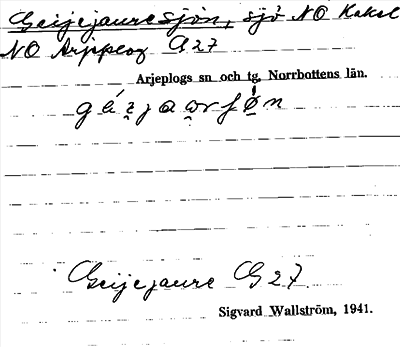 Geijejauresjön, sjö NO Kakel
NO Arjeplog G27
Arjeplogs sn och tg, Norrbottens län.
Geijejaure G27
Sigvard Wallström, 1941.